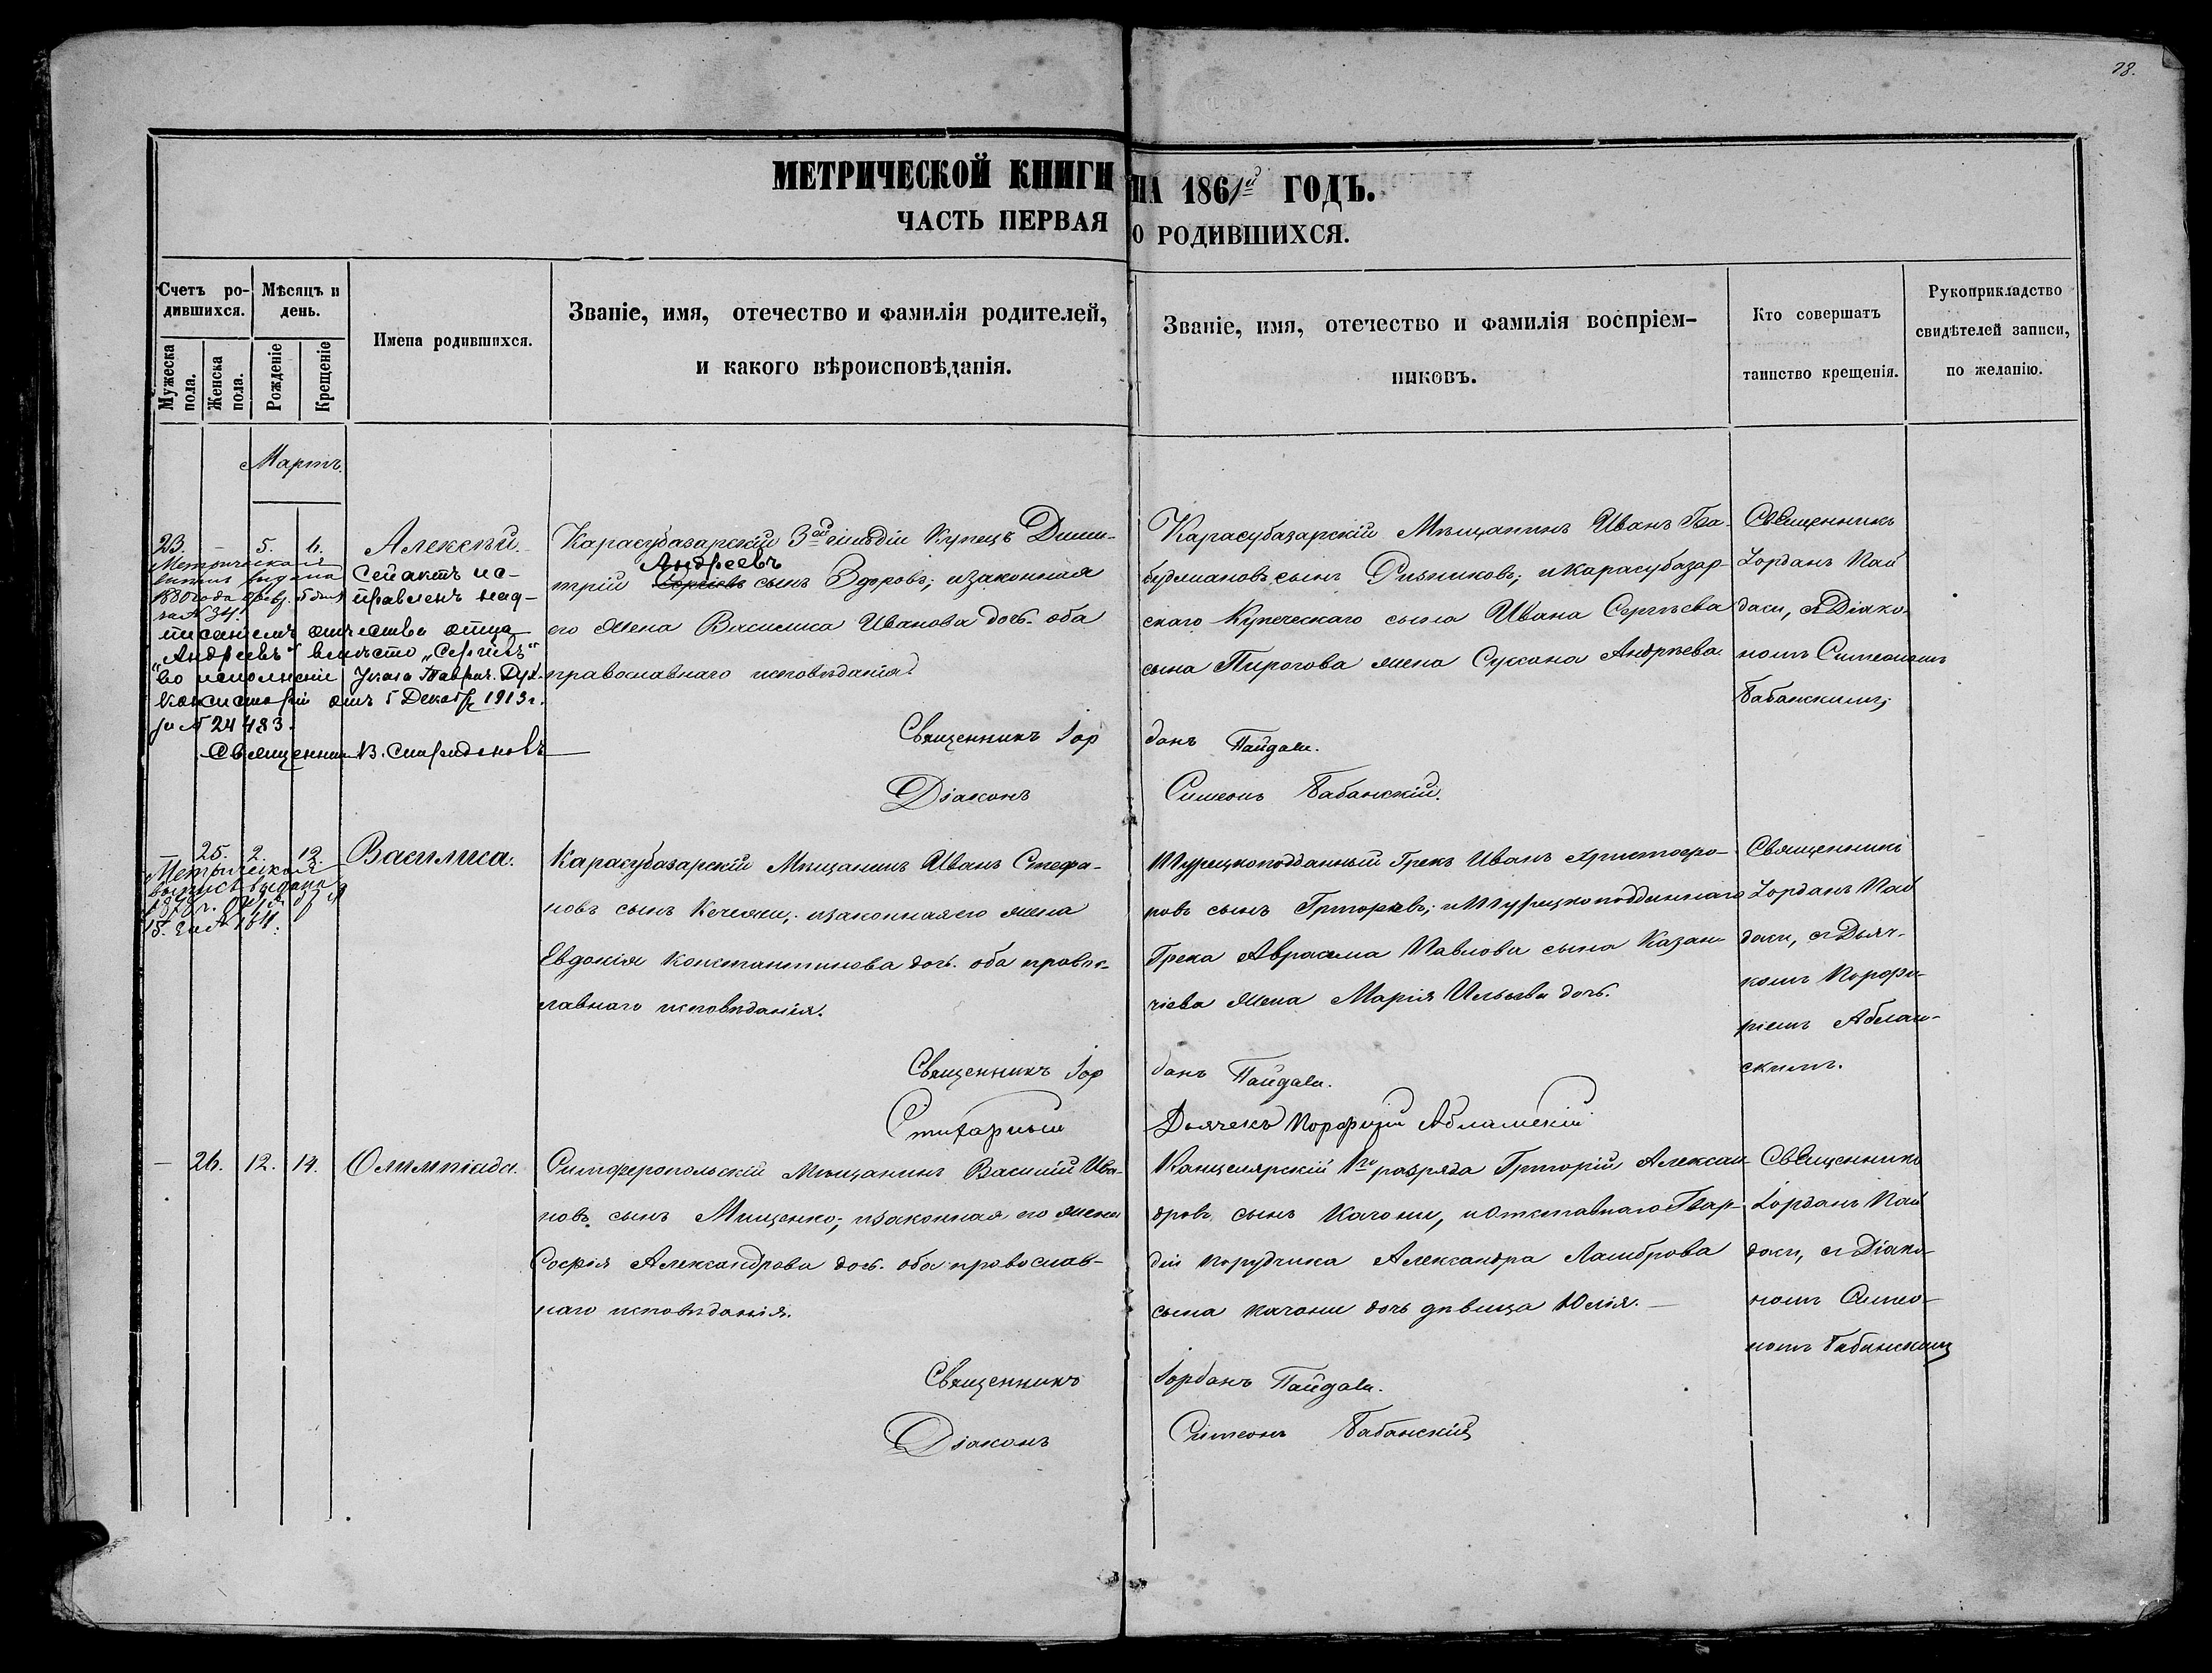 78.
МЕТРИЧЕСКОЙ КНИГИ НА 1861й ГОДЪ.
ЧАСТЬ ПЕРВАЯ О РОДИВШИХСЯ.
Счетъ ро-
дившихся.
Мужеска
пола.
Женска
пола.
Мѣсяцъ и
день.
Рожденіе
Крещеніе
Имена родившихся.
Званіе, имя, отечество и фамилія родителей,
и какого вѣроисповѣданія.
Званіе, имя, отечество и фамилія воспріем-
никовъ.
Кто совершатъ
таинство крещенія.
Рукоприкладство
свидѣтелей записи,
по желанію.
Мартъ.
23. – 5. 6. Алексѣй.
Метрическая
выпись выдана
1880 года
за №
Сей актъ ис-
правленъ над-
писаніемъ отчества отца
"Андреевъ" вмѣсто "Сергіевъ"
во исполненіе Указа Таврич. Дух.
Консисторіи отъ 5 Декабр 1913 г.
за № 24483.
Священникъ В. Спиридоновъ
Карасубазарскій 3ей гильдіи Купецъ Дими-
Андреевъ
трій Сергіевъ сынъ Здоровъ; изаконная
его жена Василиса Иванова дочь. оба
православнаго исповѣданія.
Карасубазарскій Мѣщанинъ Иванъ
сынъ Рѣзниковъ; икарасубазар-
скаго Купеческаго сына Ивана Сергѣева
сына Пирогова жена Сусана Андрѣева.
Священникъ
Іорданъ Пай
даси, съ Діако-
номъ Симеономъ
Бабанскимъ;
Священникъ Іор данъ Пайдаси.
Діаконъ Симеонъ Бабанскій.
– 25. 2. 12. Василиса.
Метрическая
выпись выдана
15. за № 164.
Карасубазарскій Мѣщанинъ Иванъ Стефа-
новъ сынъ изаконная его жена
Евдокія Константинова дочь. оба правос-
лавнаго исповѣданія.
Турецкоподданный Грекъ Иванъ Христофо-
ровъ сынъ Григорьевъ; иТурецкоподданнаго
Грека Авраама Павлова сына Казан-
чіева жена Марія Ильева дочь.
Священникъ
Іорданъ Пай
даси, съ Дьяч-
комъ Порфи-
ріемъ Аблам-
скимъ.
Священникъ Іор данъ Пайдаси.
Стихарный Дьячекъ Порфирій Абламскій
– 26. 12. 14. Олимпіада.
Симферопольскій Мѣщанинъ Василій Ива-
новъ сынъ Мищенко; изаконная его жена
Софія Александрова дочь. оба православ-
наго исповѣданія.
Канцелярскій 1го разряда Григорій Алексан-
дровъ сынъ Качони, иОтставнаго Гвар-
діи Порудчика Александра Ламброва
сына Качони дочь дѣвица Юлія. –
Священникъ
Іорданъ Пай
даси, съ Діако-
номъ Симео-
номъ Бабанскимъ
Священникъ Іорданъ Пайдаси.
Діаконъ Симеонъ Бабанскій